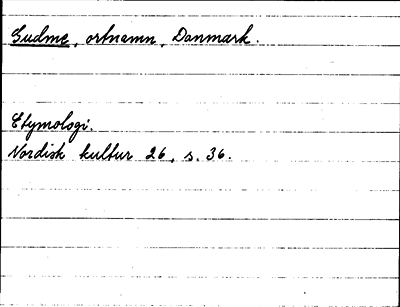 Gudme, ortnamn, Danmark.
Etymologi.
Nordisk kultur 26, s. 36.